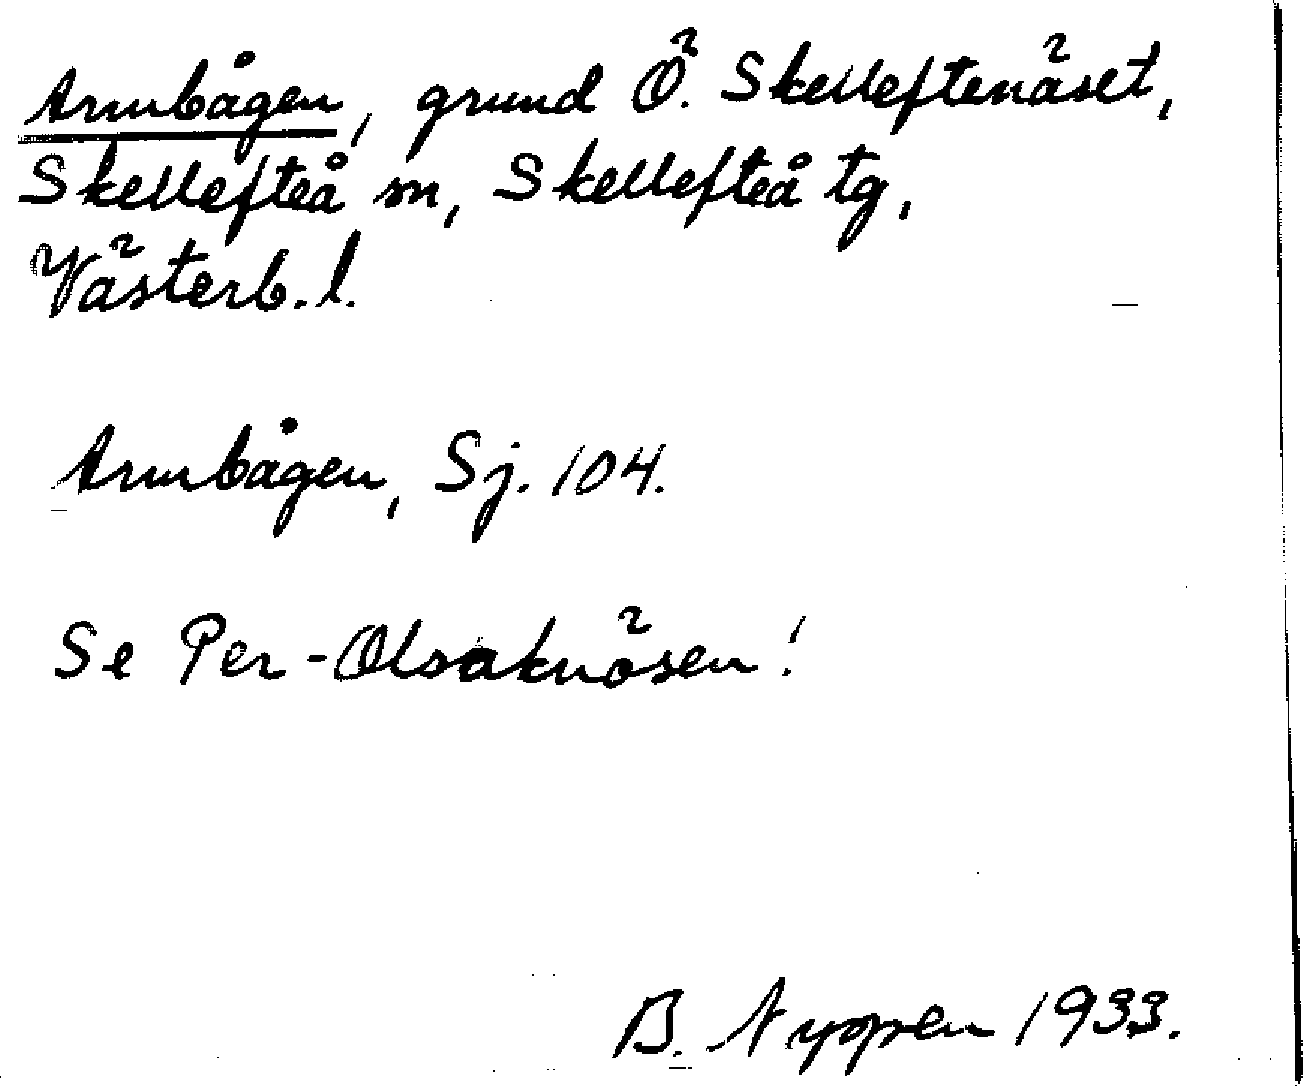 Armbågen, grund Ö. Skelleftenäset,
Skellefteå sn, Skellefteå tg,
Västerb. l.
Armbågen, Sj. 104.
Se Per-Olsaknösen!
B. Nyppen 1933.